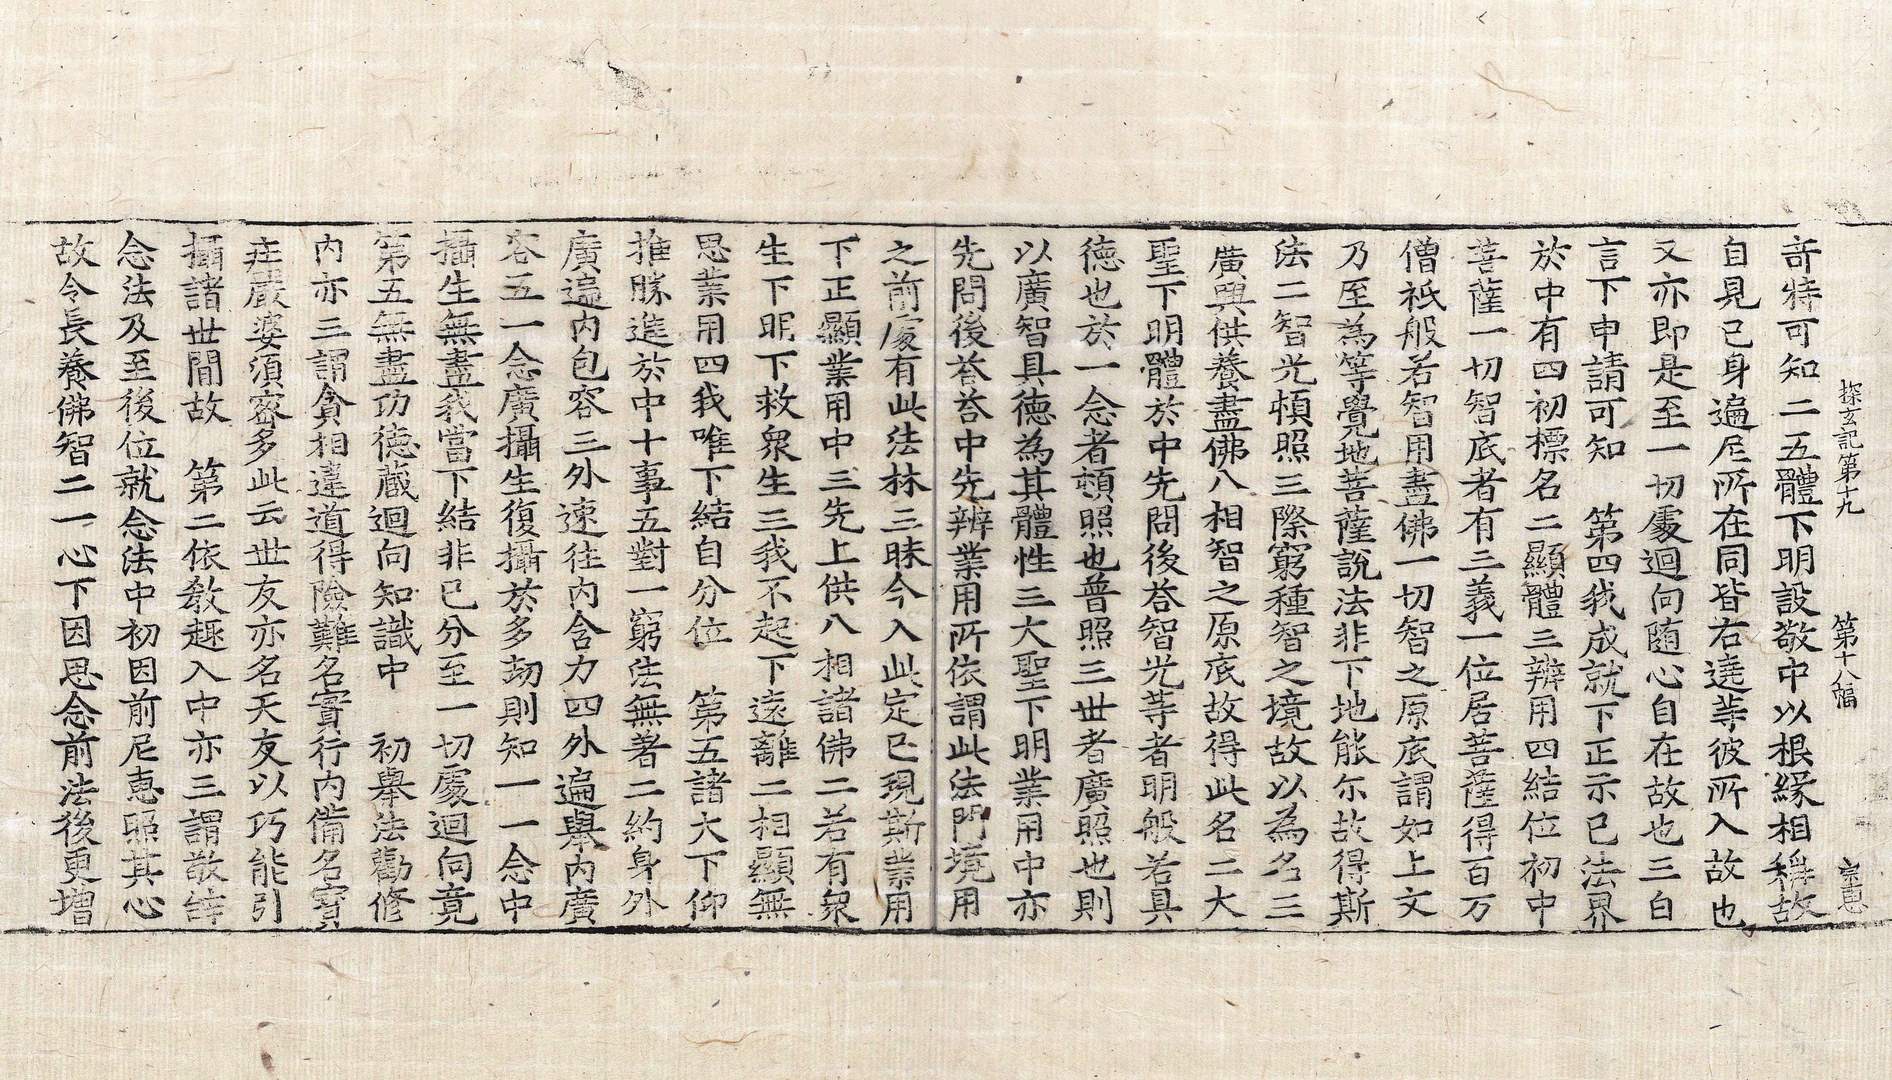 探玄記第十九　第十八幅　宗惠
奇特可知二五體下明設敬中以根緣相稱故
自見已身遍尼所在同皆右遶䓁彼所入故也
又亦即是至一切處迴向随心自在故也三白
言下申請可知　第四我成就下正示已法界
於中有四初標名二顯體三辨用四結位初中
菩薩一切智底者有三義一位居菩薩得百万
僧祇般若智用盡佛一切智之原底謂如上文
乃至為等覺地菩薩說法非下地能尓故得斯
法二智光頓照三際窮種智之境故以為名三
廣興供養盡佛八相智之原底故得此名二大
聖下明體於中先問後荅智光䓁者明般若具
德也於一念者頓照也普照三世者廣照也則
以廣智具德為其體性三大聖下明業用中亦
先問後荅荅中先辨業用所依謂此法門境用
之前廣有此法林三昧今入此定已現斯業用
下正顯業用中三先上供八相諸佛二若有衆
生下明下救衆生三我不起下遠離二相顯無
思業用四我唯下結自分位　第五諸大下仰
推勝進於中十事五對一窮法無著二約身外
廣遍內包容三外速往內含力四外遍舉內廣
容五一念廣攝生復攝於多劫則知一一念中
攝生無盡我當下結非已分至一切處迴向竟
第五無盡功德藏迴向知識中　初舉法勸修
內亦三謂貪相違道得險難名實行內備名寶
莊嚴婆須密多此云世友亦名天友以巧能引
攝諸世間故　第二依教趣入中亦三謂敬辝
念法及至後位就念法中初因前尼惠照其心
故令長養佛智二一心下因思念前法後更增